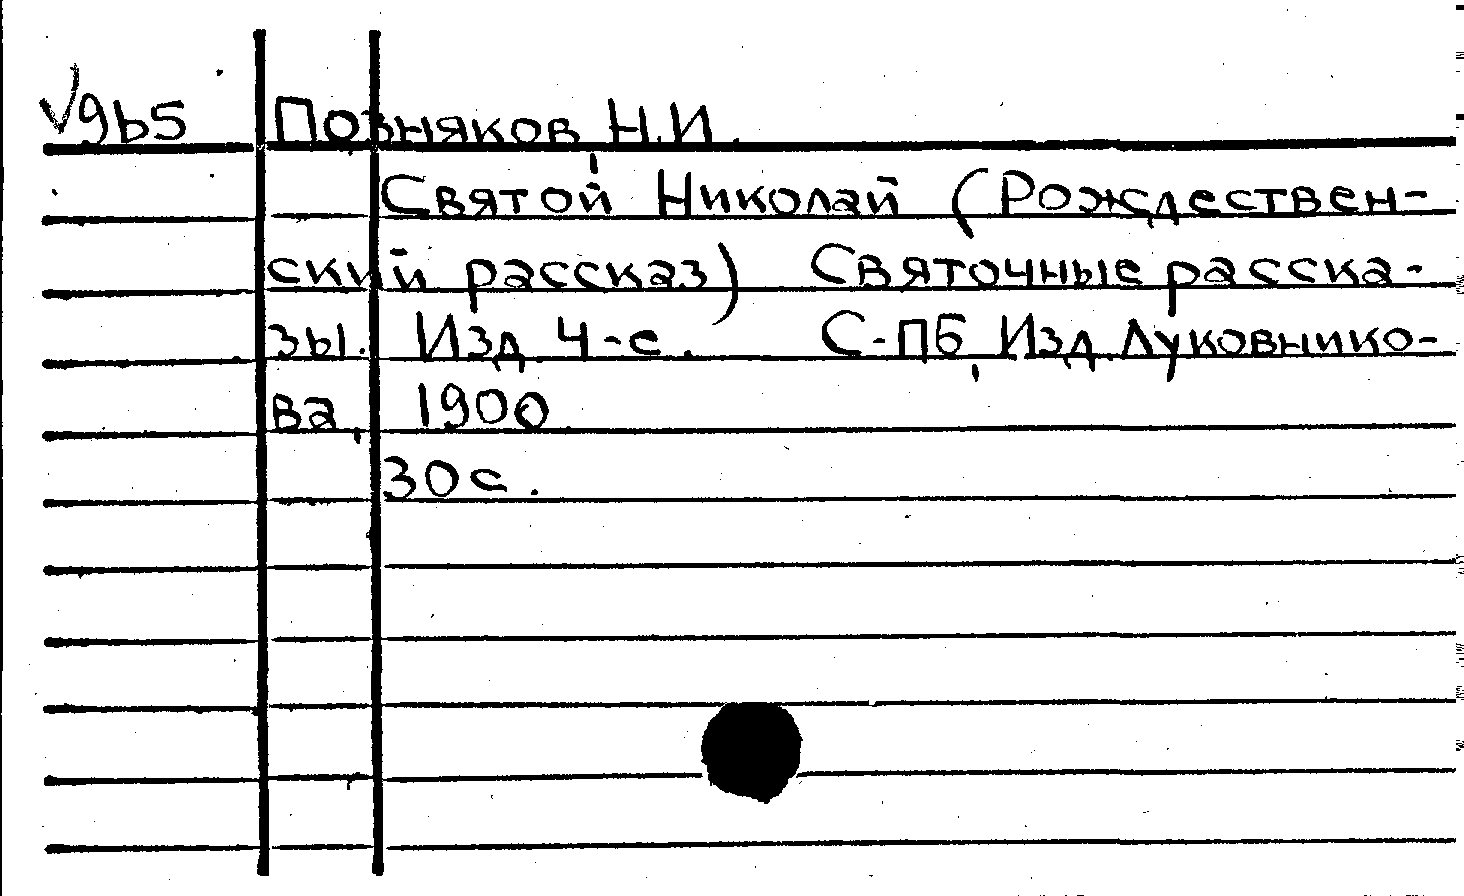 V9b5 Позняков, Н.И.
Святой Николай (Рождествен-
ский рассказ) Святочные расска-
зы. Изд. 4-е. С-ПБ, Изд. Луковнико-
ва, 1900
30с.